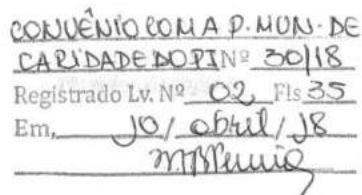 CONVÊNIO COM A P. MUN. DE
CARIDADE DO PI Nº 30/18
Registrado Lv. Nº 02 Fls 35
Em, 10/ abril / 18